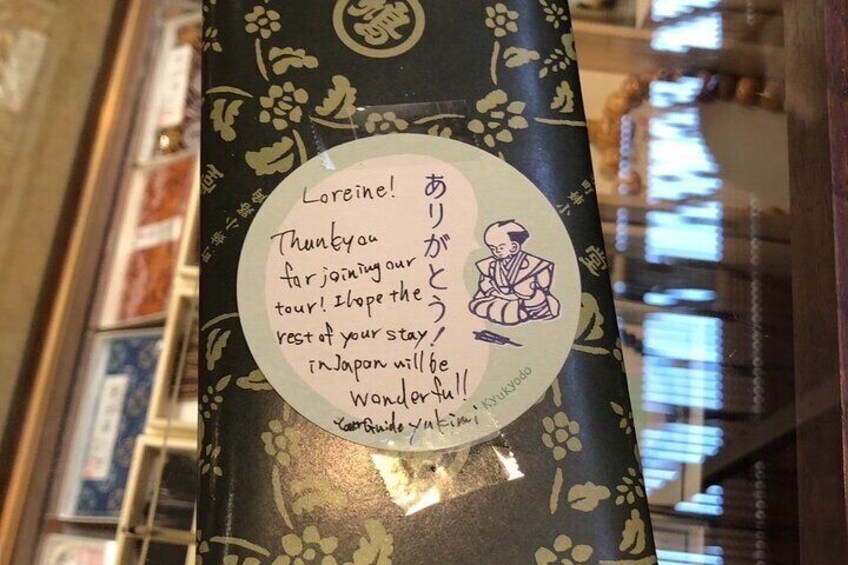 Loreine!
Thankyou
for joining our
tour! I hope the
rest of your stay
in Japan will be
wonderful!
Your Guide yukimi
ありがとう!
Kyukyodo
鳩